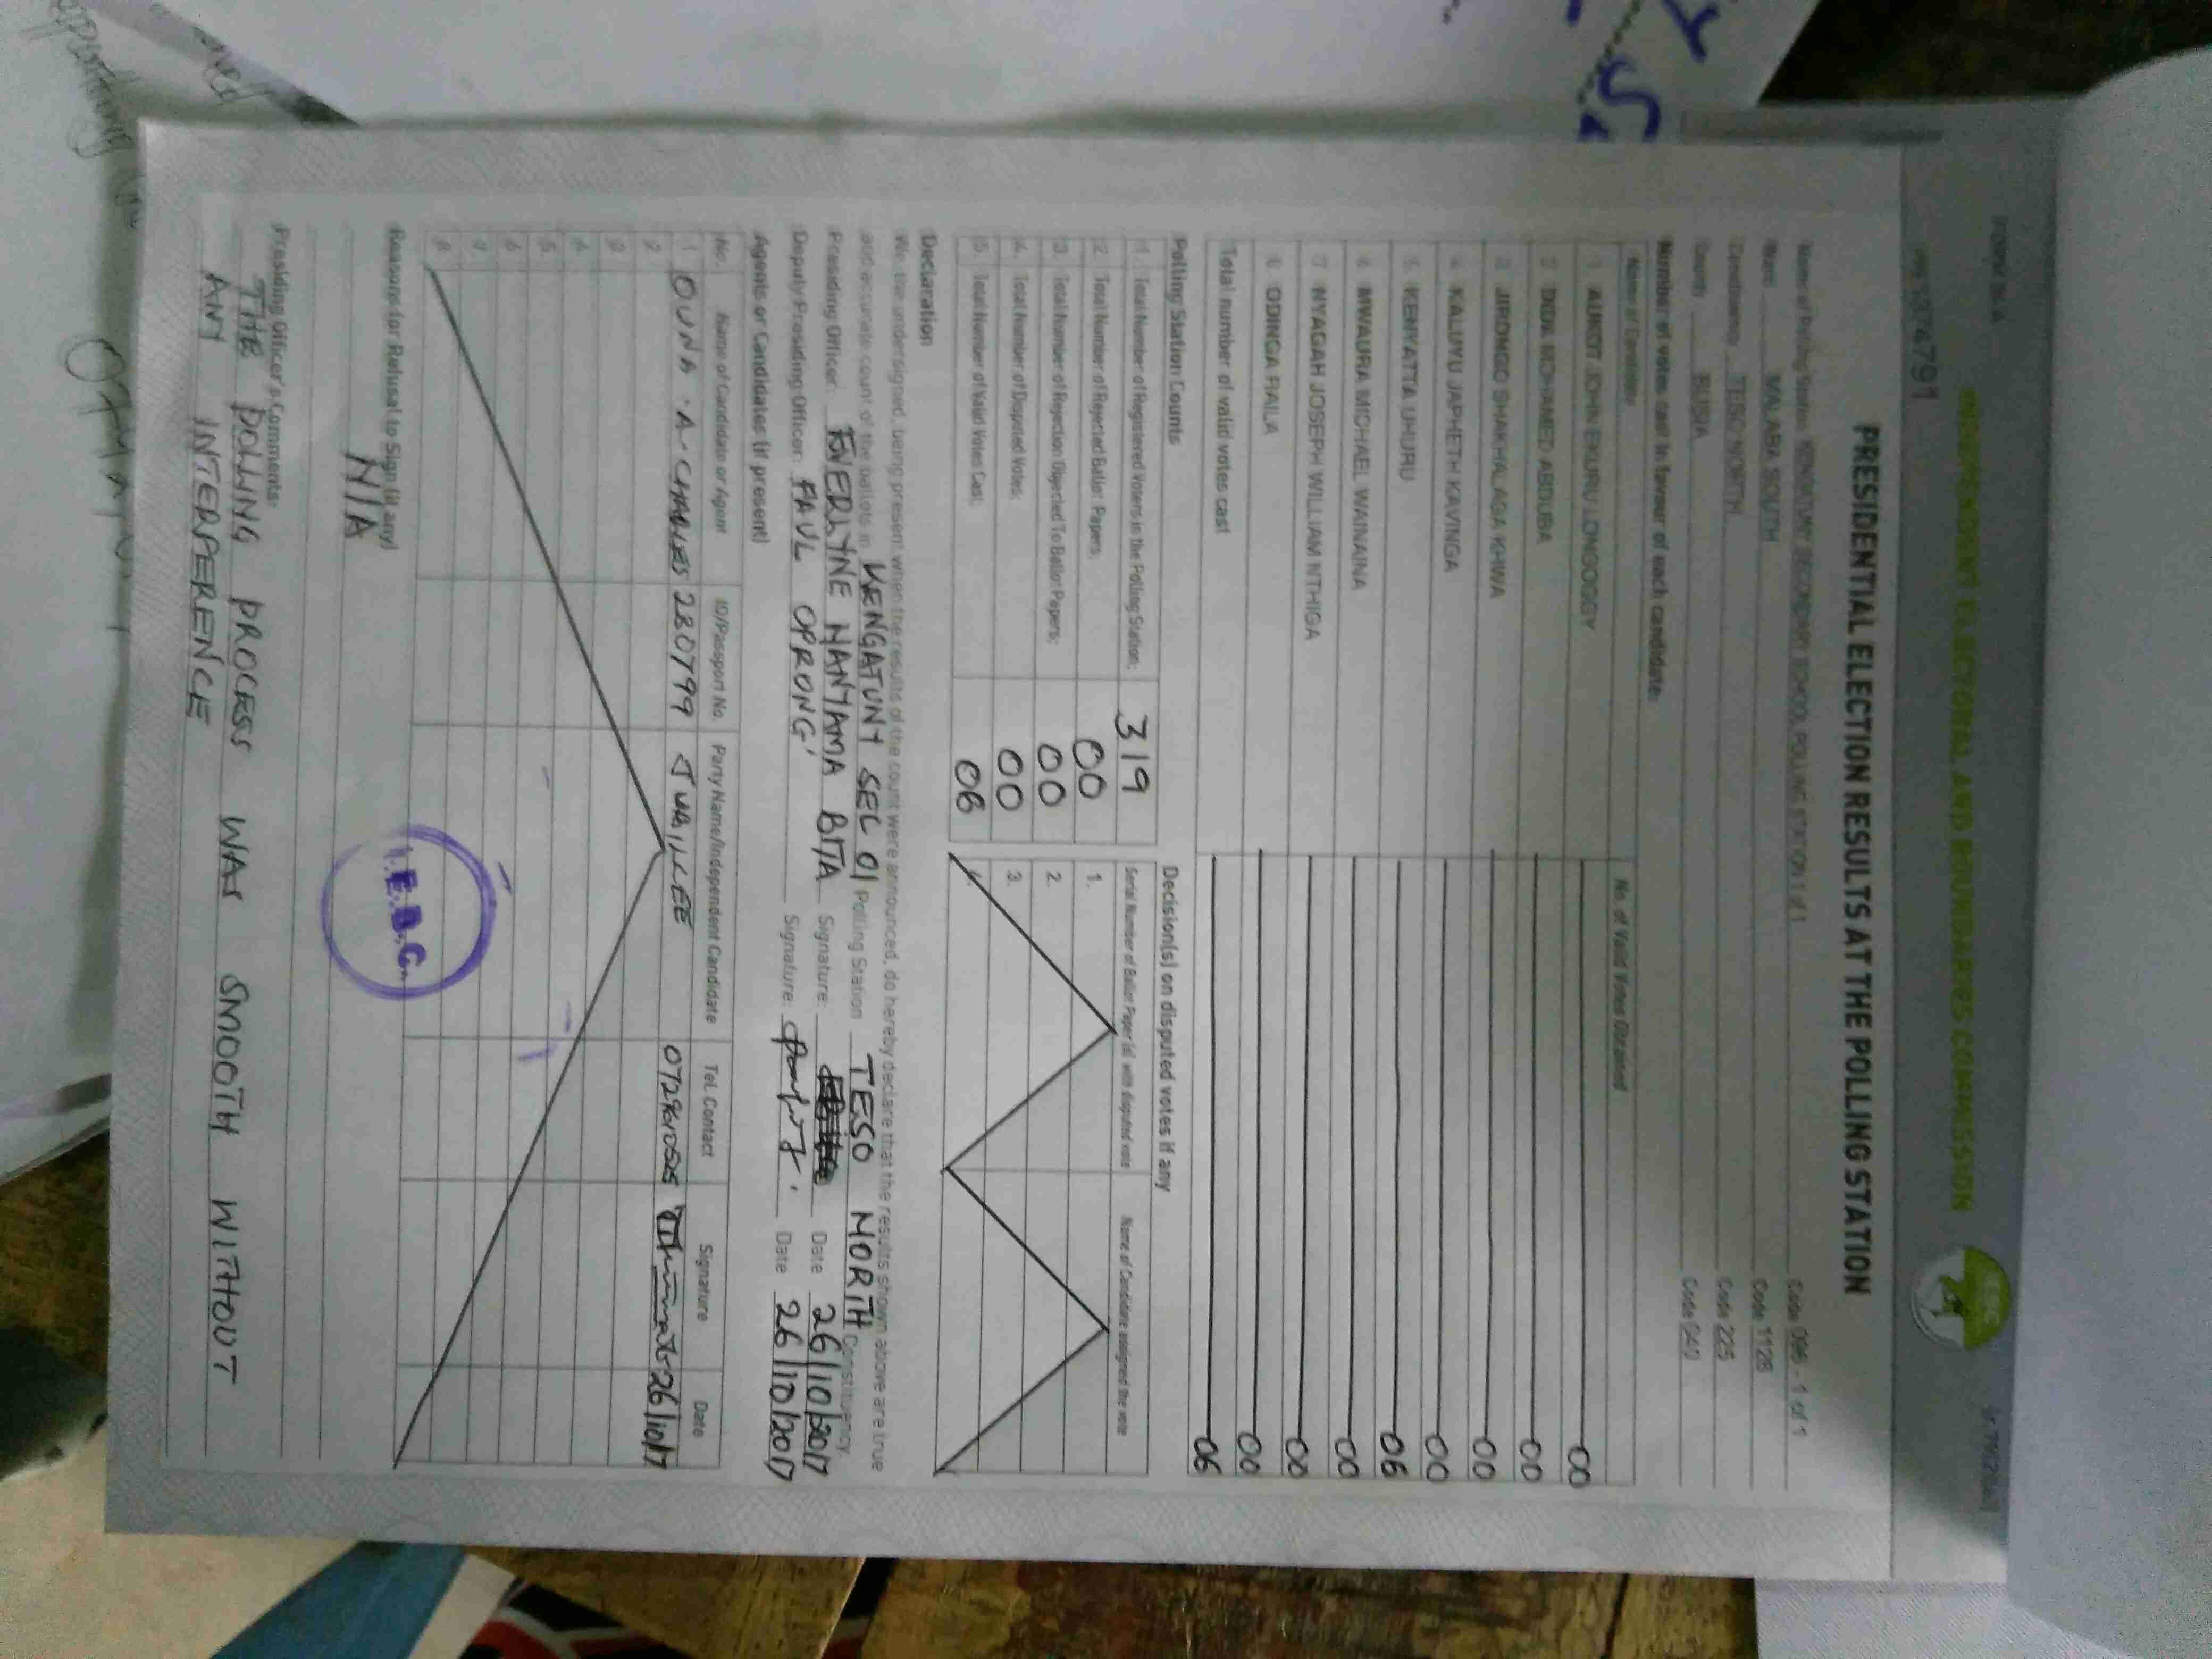 FORM 34A
INDEPENDENT ELECTORAL AND BOUNDARIES COMMISSION
PRESIDENTIAL ELECTION RESULTS AT THE POLLING STATION
Name of Polling Station KENGATUNY SECONDARY SCHOOL POLLING STATION 1 of 1 Code 096 - 1 of 1
Ward MALABA SOUTH Code 1126
Constituency TESO NORTH Code 225
County BUSIA Code 040
Number of votes cast in favour of each candidate:
Name of Candidate No. of Valid Votes Obtained
1 AUKOT JOHN EKURU LONGOGGY 00
2 DIDA MOHAMED ABDUBA 00
3 JIRONGO SHAKHALAGA KHWA 00
4 KALUYU JAPHETH KAVINGA 00
5 KENYATTA UHURU 06
6 MWAURA MICHAEL WAINAINA 00
7 NYAGAH JOSEPH WILLIAM NTHIGA 00
8 ODINGA RAILA 00
Total number of valid votes cast 06
Polling Station Counts
1. Total Number of Registered Voters in the Polling Station: 319
2. Total Number of Rejected Ballot Papers: 00
3. Total Number of Rejection Objected To Ballot Papers: 00
4. Total Number of Disputed Votes: 00
5. Total Number of Valid Votes Cast: 06
Decision(s) on disputed votes if any
Serial Number of Ballot Paper (s) with disputed vote Name of Candidate assigned the vote
1.
2.
3.
4.
Declaration
We, the undersigned, being present when the results of the count were announced, do hereby declare that the results shown above are true
and accurate count of the ballots in KENGATUNY SEC 01 Polling Station TESO NORTH Constituency.
Presiding Officer: EVERLYNE NANYAMA BITA Signature: Date 26/10/2017
Deputy Presiding Officer: PAUL OPRONG' Signature: Date 26/10/2017
Agents or Candidates (if present)
No. Name of Candidate or Agent ID/Passport No. Party Name/Independent Candidate Tel. Contact Signature Date
1 OUNA A. CHARLES 2807799 JUBILEE 26/10/17
2
3
4
5
6
7
8
Reasons for Refusal to Sign (if any)
N/A
I.E.B.C.
Presiding Officer's Comments:
THE POLLING PROCESS WAS SMOOTH WITHOUT
ANY INTERFERENCE